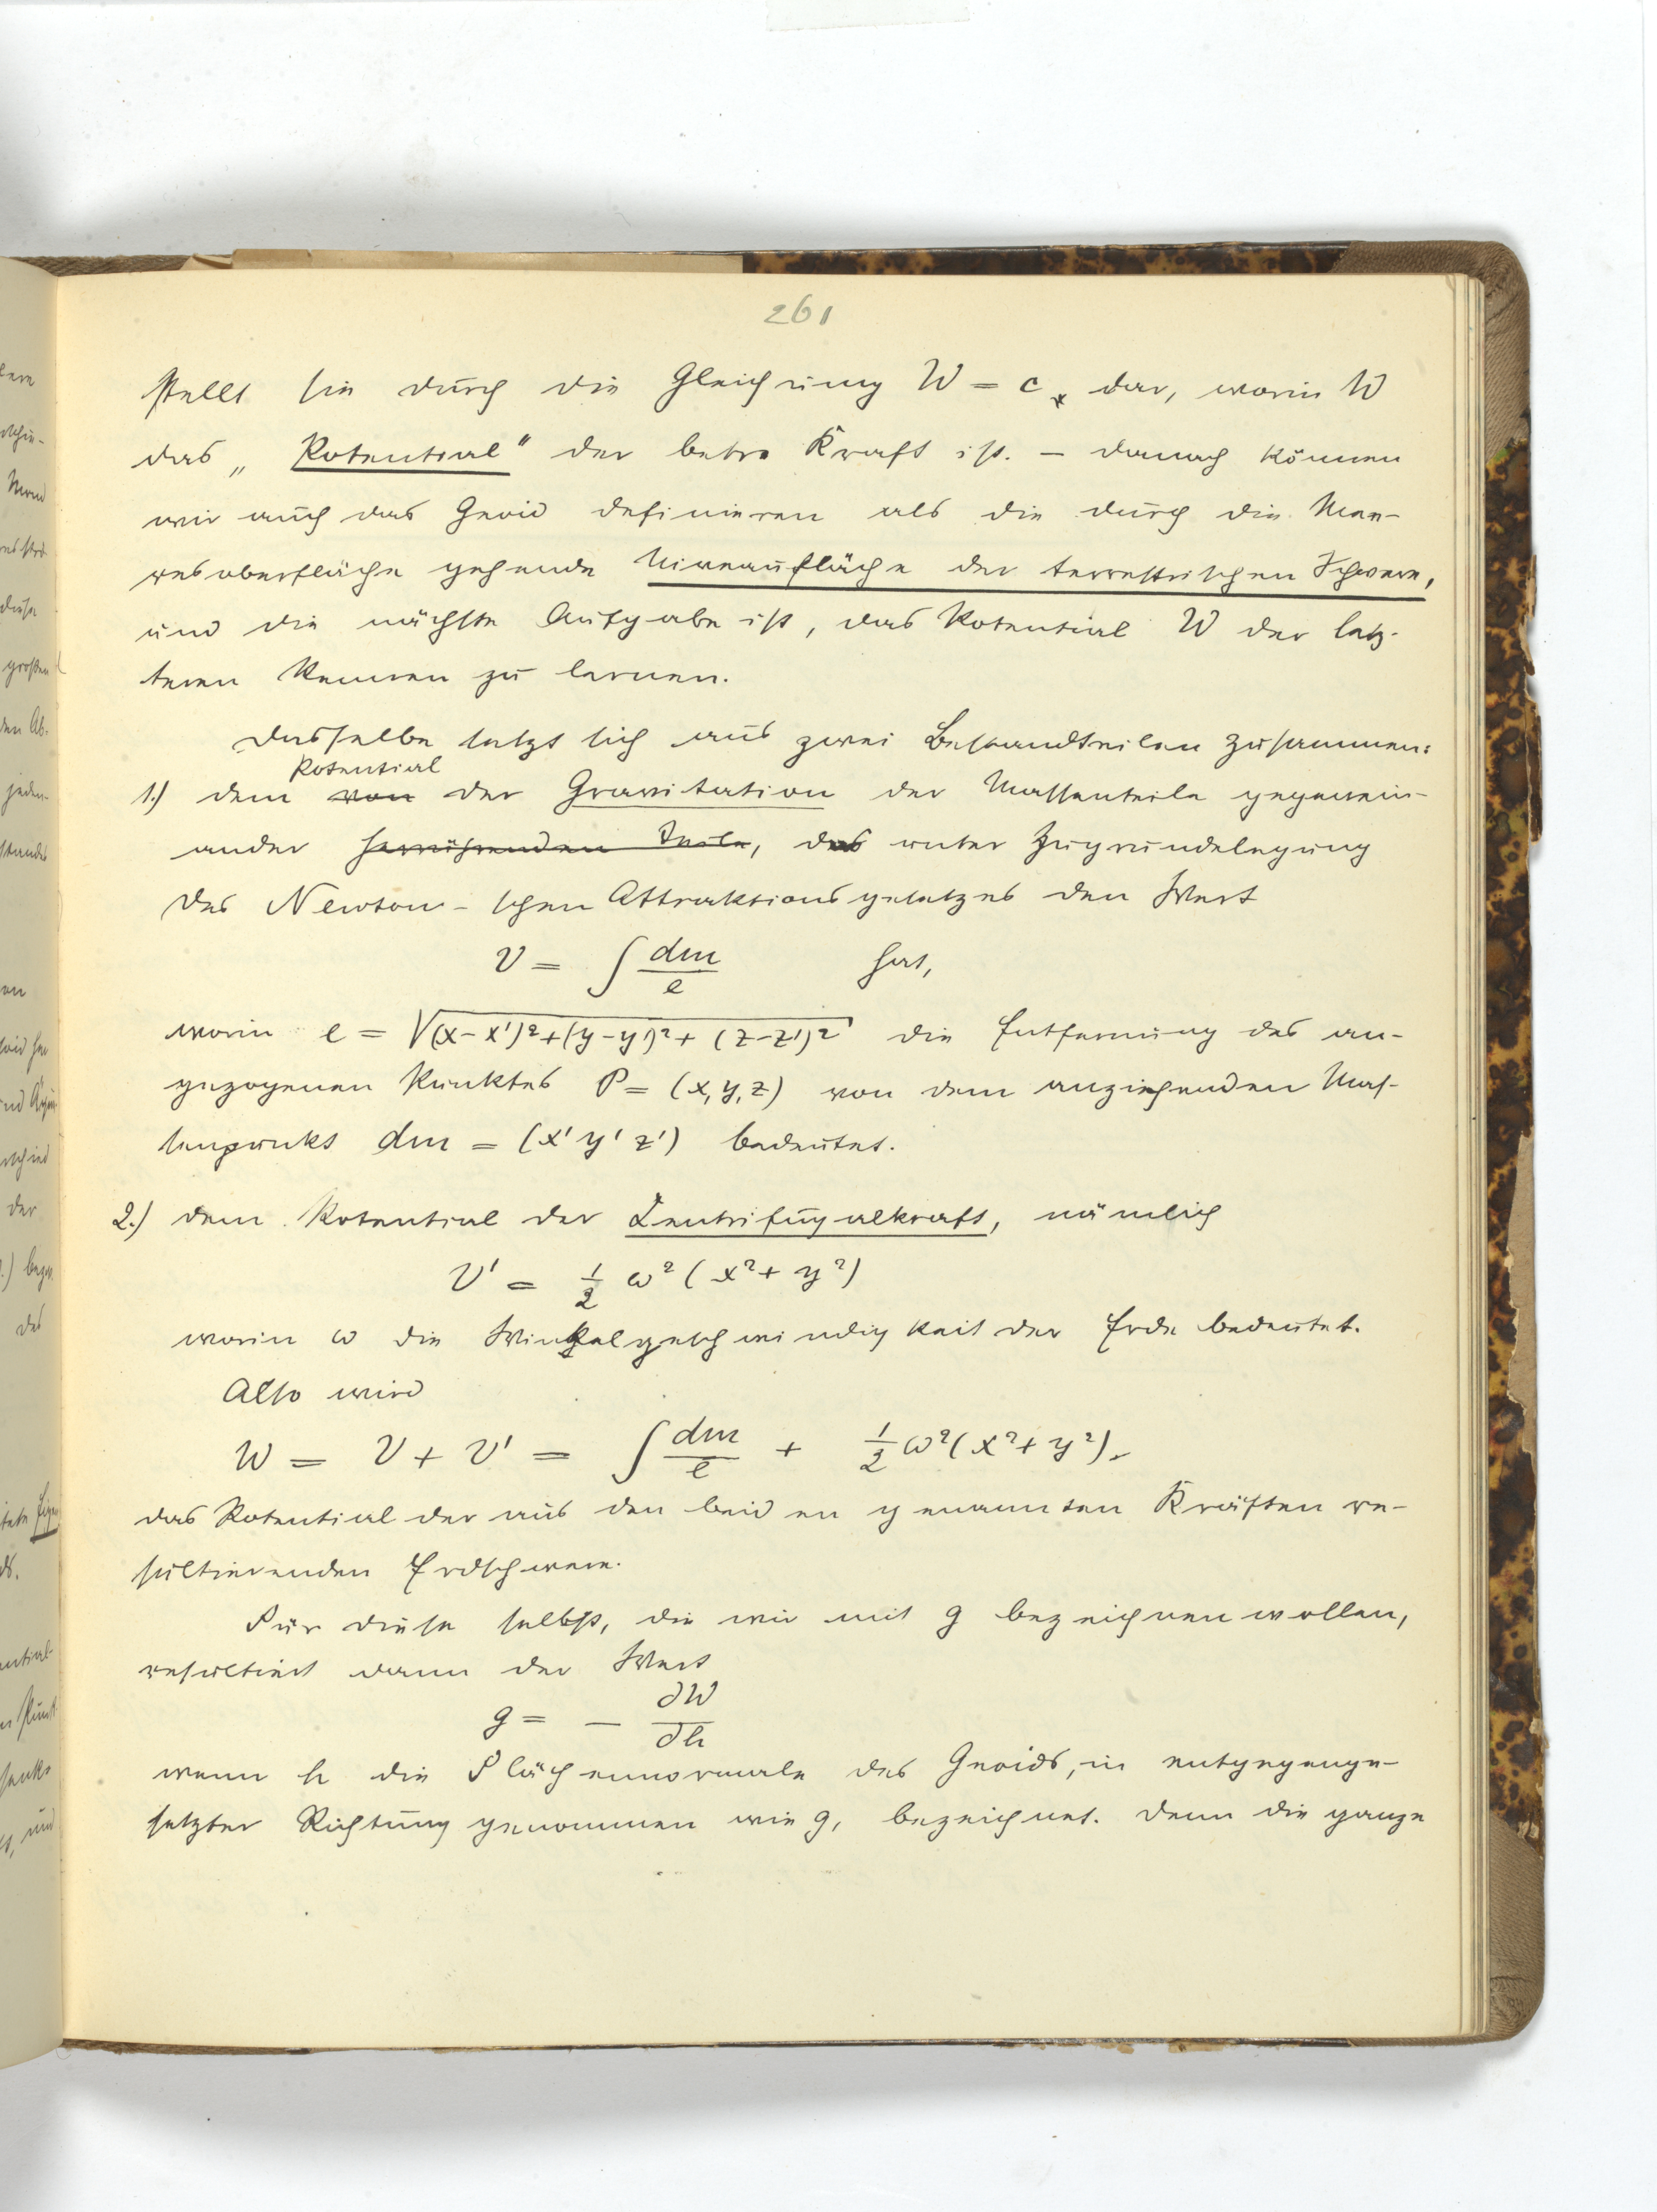 261
stellt sie durch die Gleichung W = c dar, worin W
das „Potential“ der betr. Kraft ist. – Danach können
wir auch das Geoid definieren als die durch die Mee-
resoberfläche gehende Niveaufläche der terrestrischen Schwere,
und die nächste Aufgabe ist, das Potential W der letz-
teren kennen zu lernen.
Dasselbe setzt sich aus zwei Bestandteilen zusammen:
Potential
1.) dem von der Gravitation der Massenteile gegenein-
ander herrührenden Teile, das unter Zugrundelegung
des Newton-schen Attraktionsgesetzes den Wert
V = ∫ dm/e hat,
worin e = √(x-x')²+(y-y')²+(z-z')² die Entfernung des an-
gezogenen Punktes P = (x,y,z) von dem anziehenden Mas-
senpunkt dm = (x' y' z') bedeutet.
2.) dem Potential der Zentrifugalkraft, nämlich
V' = 1/2 ω² (x² + y²)
worin ω die Winkelgeschwindigkeit der Erde bedeutet.
Also wird
W = V + V' = ∫ dm/e + 1/2 ω² (x² + y²).
das Potential der aus den beiden genannten Kräften re-
sultierenden Erdschwere.
Für diese selbst, die wir mit g bezeichnen wollen,
resultiert dann der Wert
g = − ∂W/∂h
wenn h die Flächennormale des Geoids, in entgegenge-
setzter Richtung genommen wie g, bezeichnet. Denn die ganze